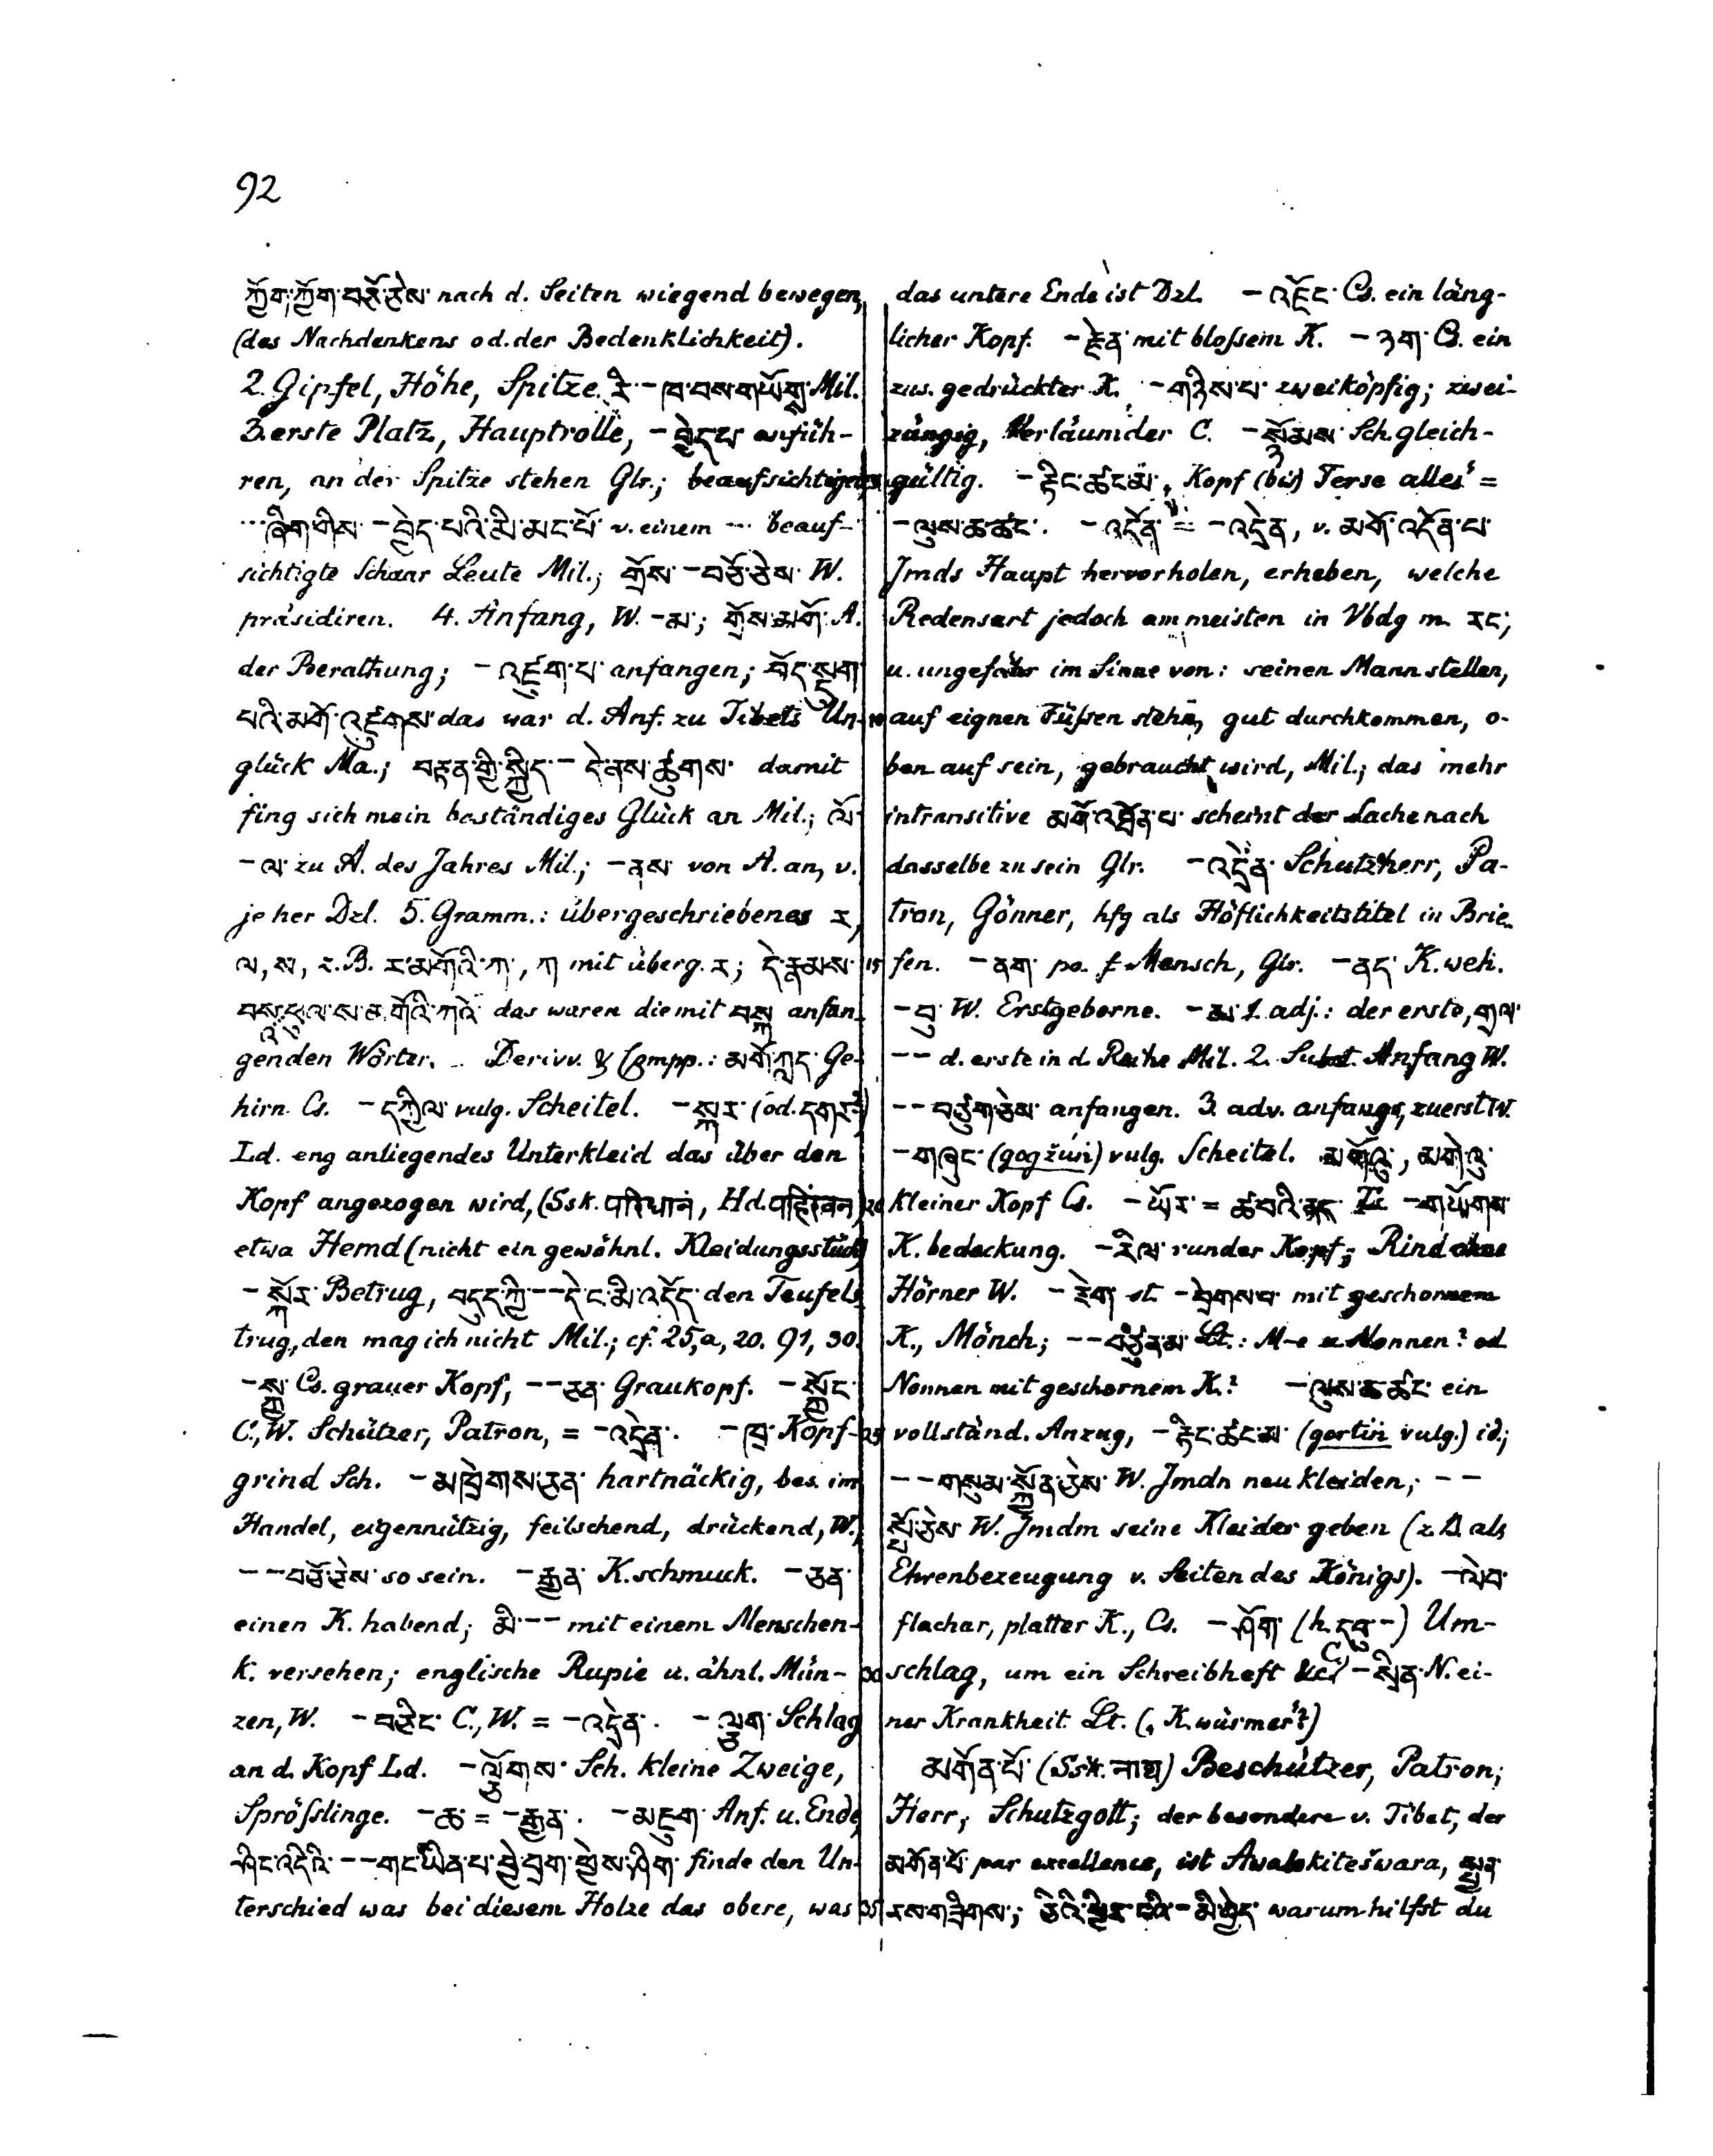 92
ཀྱོག་ཀྱོག་བཅོ་ཅེས་ nach d. Seiten wiegend bewegen,
(des Nachdenkens od. der Bedenklichkeit).
2. Gipfel, Höhe, Spitze. རི་ – ཁ་བས་གཡོགས་ Mil.
3. erste Platz, Hauptrolle, – བྱེད་པ་ anfüh-
ren, an der Spitze stehen Glr.; beaufsichtigen
··· ཞིག་གིས་ – བྱེད་པའི་མི་མང་པོ་ v. einem ··· beauf-
sichtigte Schaar Leute Mil.; གྲོས་ – བཅོ་ཅེས་ W.
präsidiren. 4. Anfang, W. – མ་; གྲོས་མགོ་ A.
der Berathung; – འཛུག་པ་ anfangen; བོད་སྡུག་
པའི་མགོ་འཛུགས་ das war d. Anf. zu Tibets Un-
glück Ma.; བརྟན་གྱི་སྐྱིད་ – དེ་ནས་ཚུགས་ damit
fing sich mein beständiges Glück an Mil.; ལོ་
– ལ་ zu A. des Jahres Mil.; – ནས་ von A. an, v.
je her Dzl. 5. Gramm.: übergeschriebenes ར,
ལ, ས, z. B. ར་མགོའི་ཀ་, ཀ mit überg. ར; དེ་རྣམས་ 15
བསྐ་ ས་མགོའི་ཀའོ་ das waren die mit བསྐ anfan-
genden Wörter. – Derivv. & Compp.: མགོ་ཀླད་ Ge-
hirn Cs. – དཀྱིལ་ vulg. Scheitel. – སྐར་ (od. དཀར་?)
Ld. eng anliegendes Unterkleid das über den
Kopf angezogen wird, (Ssk. परिधानं, Hd. पहिरवन) 20
etwa Hemd (nicht ein gewöhnl. Kleidungsstück)
– སྐོར་ Betrug, བདུད་ཀྱི་ – – དེ་ང་མི་འདོད་ den Teufels
trug, den mag ich nicht Mil.; cf. 25, a, 20. 91, 30.
– སྐྲ་ Cs. grauer Kopf, – – ཅན་ Graukopf. – སྐྱོང་
C., W. Schützer, Patron, = – འདྲེན་. – ཁྲ་ Kopf- 25
grind Sch. – མཁྲེགས་ཅན་ hartnäckig, bes. im
Handel, eigennützig, feilschend, drückend, W.,
– – བཅོ་ཅེས་ so sein. – རྒྱན་ K.schmuck. – ཅན་
einen K. habend; མི་ – – mit einem Menschen-
k. versehen; englische Rupie u. ähnl. Mün- 30
zen, W. – བཅིང་ C., W. = – འདྲེན་. – ལྕུག་ Schlag
an d. Kopf Ld. – ལྕོགས་ Sch. kleine Zweige,
Sprösslinge. – ཆ་ = – རྒྱན་. – མཇུག་ Anf. u. Ende,
ཤིང་འདིའི་ – – གང་ཡིན་པ་ཕྱེ་བྲག་ཕྱེས་ཤིག་ finde den Un-
terschied was bei diesem Holze das obere, was 35
das untere Ende ist Dzl. – འཇོང་ Cs. ein läng-
licher Kopf. – རྗེན་ mit blossem K. – ཉག་ Cs. ein
zus. gedrückter K. – གཉིས་པ་ zweiköpfig; zwei-
züngig, Verläumder C. – སྙོམས་ Sch. gleich-
gültig. – རྟིང་ཚང་མ་ „Kopf (bis) Ferse alles“ =
– ལུས་ཆ་ཚང་. – འདོན་ = – འདྲེན, v. མགོ་འདོན་པ་
Jmds Haupt hervorholen, erheben, welche
Redensart jedoch am meisten in Vbdg m. རང་,
u. ungefähr im Sinne von: seinen Mann stellen,
10 auf eignen Füssen stehn, gut durchkommen, o-
ben auf sein, gebraucht wird, Mil.; das mehr
intransitive མགོ་འཐོན་པ་ scheint der Sache nach
dasselbe zu sein Glr. – འདྲེན་ Schutzherr, Pa-
tron, Gönner, hfg als Höflichkeitstitel in Brie-
fen. – ནག་ po. f. Mensch, Glr. – ནད་ K.weh.
– བུ་ W. Erstgeborne. – མ་ 1. adj.: der erste, གྲལ་
– – d. erste in d. Reihe Mil. 2. Subst. Anfang W.
– – བཙུག་ཅེས་ anfangen. 3. adv. anfangs, zuerst W.
– གཞུང་ (gog žuṅ) vulg. Scheitel. མགོའུ་, མགེའུ་
kleiner Kopf Cs. – ཡོར་ = ཚ་བའི་ནད་ – གཡོགས་
K. bedeckung. – རིལ་ runder Kopf; Rind ohne
Hörner W. – རེག་ – བྲེགས་པ་ mit geschornem
K., Mönch; – – བཙུན་མ་ Lt.: M-e u. Nonnen? od
Nonnen mit geschornem K.? – ལུས་ཆ་ཚང་ ein
vollständ. Anzug, – རྟིང་ཚང་མ་ (gortin vulg.) id.;
– – གསུམ་སྐོན་ཅེས་ W. Jmdn neu kleiden; – –
སྤྲོ་ཅེས་ W. Jmdm seine Kleider geben (z. B. als
Ehrenbezeugung v. Seiten des Königs). – ལེབ་
flacher, platter K., Cs. – ཤོག་ (h. དབུ་ –) Um-
schlag, um ein Schreibheft &c. C. – སྲིན་ N. ei-
ner Krankheit. Lt. („K.würmer“?)
མགོན་པོ་ (Ssk. नाथ) Beschützer, Patron;
Herr; Schutzgott; der besondere v. Tibet, der
མགོན་པོ་ par excellence, ist Awalokiteśwara, སྤྱན་
རས་གཟིགས་; ཅིའི་ཕྱིར་ངའི་ – མི་བྱེད་ warum hilfst du